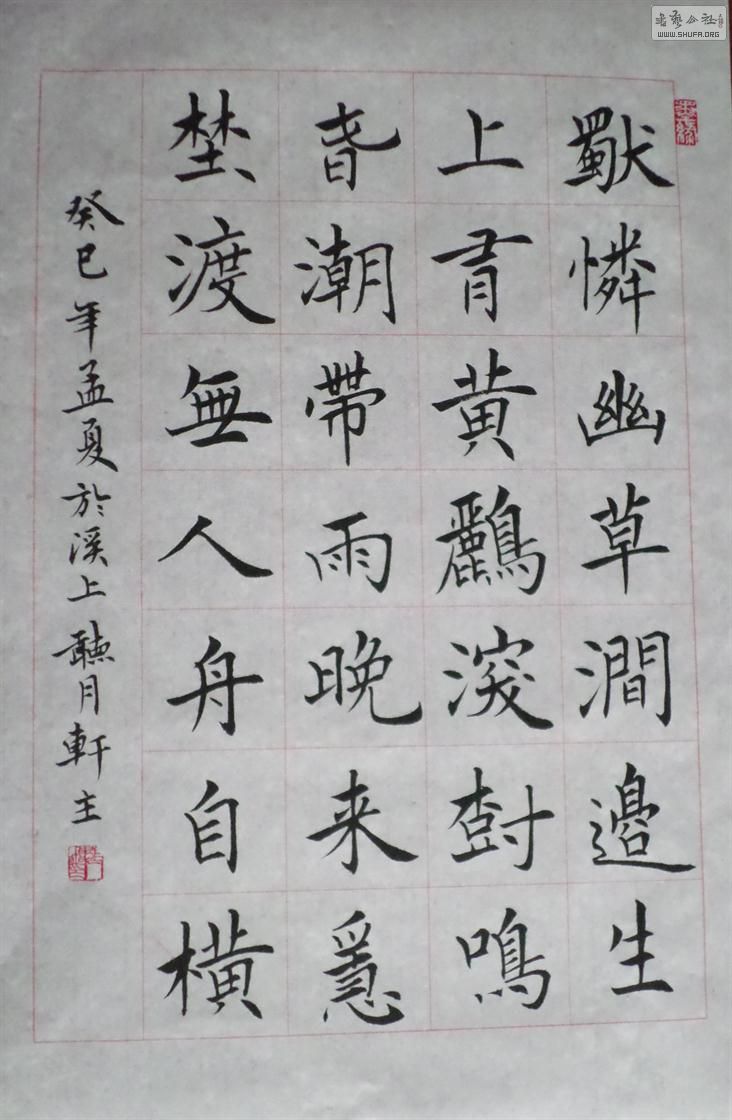 獨憐幽草澗邊生
上有黃鸝深樹鳴
春潮帶雨晚来急
埜渡無人舟自橫
癸巳年孟夏於溪上聽月軒主
书艺公社
WWW.SHUFA.ORG